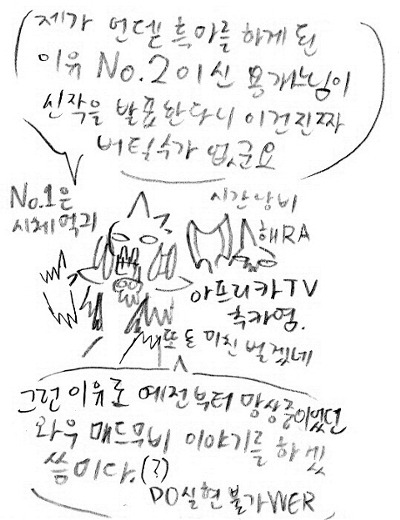 제가 언델 흑아를 하게 된
이유 No.2이신 용개느님이
신작을 발표한다니 이건진짜
버틸수가 없군요
No.1은
시체먹괴
시간낭비
해RA
아프리카TV
축카영.
또 돈 미친 벌겠네
그런 이유로 예전부터 망상중이었던
와우 매드무비 이야기를 하겠
씀미다.(?)
DO실현불가WER